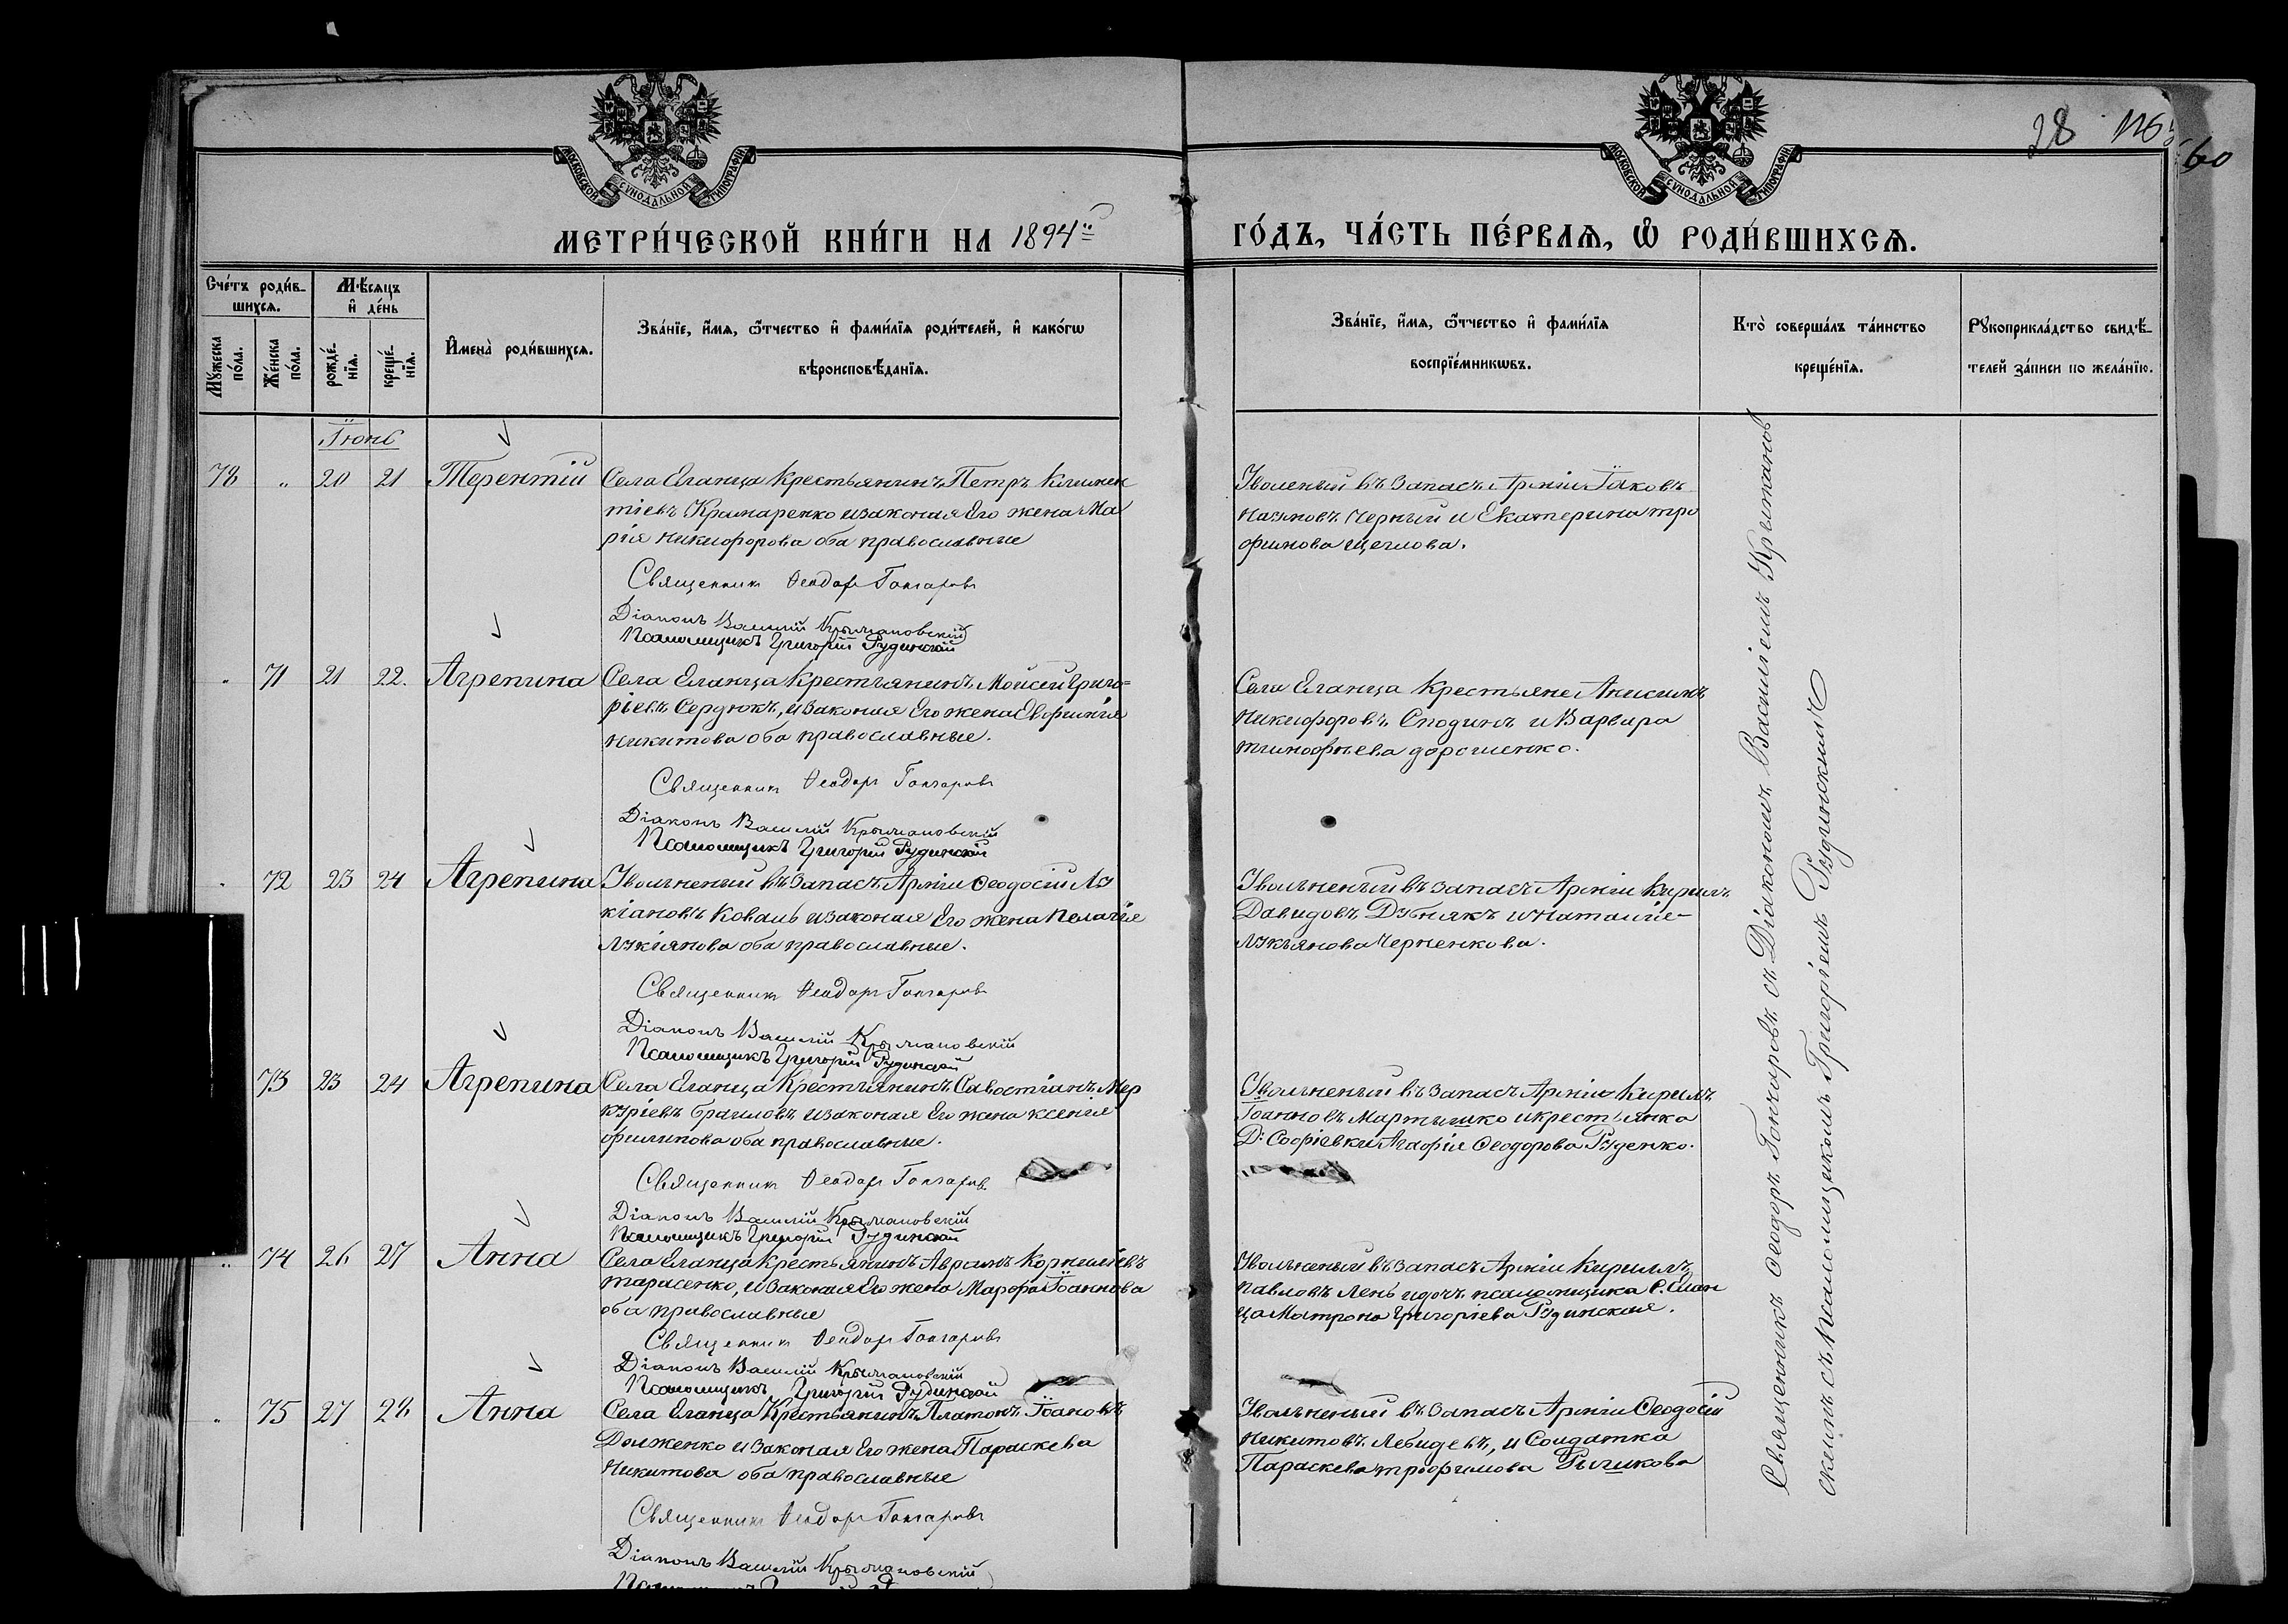 28
60
МОСКОВСКОЙ СѴНОДАЛЬНОЙ ТИПОГРАФІИ
МОСКОВСКОЙ СѴНОДАЛЬНОЙ ТИПОГРАФІИ
МЕТРИ́ЧЕСКОЙ КНИ́ГИ НА 1894й
ГО́ДЪ, ЧА́СТЬ ПЕ́РВАѦ, Ѽ РОДИ́ВШИХСѦ.
Сче́тъ роди́в-
шихсѧ.
Мꙋ́жеска
по́ла.
Же́нска
по́ла.
Мѣ́сѧцъ
и҆ де́нь
рожде́-
нїѧ.
креще́-
нїѧ.
И҆мена̀ роди́вшихсѧ.
Зва́нїе, и҆́мѧ, ѻ҆́тчество и҆ фами́лїѧ роди́телей, и҆ како́гѡ
вѣроисповѣ́данїѧ.
Зва́нїе, и҆́мѧ, ѻ҆́тчество и҆ фами́лїѧ
воспрїе́мникѡвъ.
Кто̀ соверша́лъ та́инство
креще́нїѧ.
Рꙋкоприкла́дство свидѣ́-
телей за́писи по жела́нїю.
Іюнь
78 „ 20 21 Терентій Села Еланца Крестьянинъ Петръ Климен
тіевъ Крамаренко изаконая Его жена Ма
рія Никифорова оба православные
Священникъ Ѳеодоръ Гончаровъ
Діаконъ Василій Крыжановскій
Псаломщикъ Григорій Рудинскій
Уволеный въ Запасъ Арміи Іаковъ
Наумовъ Черный и Екатерина тро
фимова щеглова.
„ 71 21 22. Агрепина Села Еланца Крестьянинъ Моисей Григо=
ріевъ Сердюкъ, изаконая Его жена Евфимія
Никитова оба православные.
Священникъ Ѳеодоръ Гончаровъ
Діаконъ Василій Крыжановскій
Псаломщикъ Григорій Рудинскій
Села Еланца Крестьяне Анисимъ
Никифоровъ Сподинъ и Варвара
тимофѣева дорошенко.
„ 72 23 24 Агрепина Увольненый въ Запасъ Арміи Ѳеодосій Лу
кіановъ Коваль изаконая Его жена Пелагія
Лукіянова оба православные.
Священникъ Ѳеодоръ Гончаровъ
Діаконъ Василій Крыжановскій
Псаломщикъ Григорій Рудинскій
Увольненый въ запасъ Арміи Кирилъ
Давидовъ Дубнякъ и Наталіе-
Лукьянова Черненкова.
73 23 24 Агрепина Села Еланца Крестьянинъ Савостіанъ Мер
куріевъ Браиловъ изаконая Его жена ксенія
филипова оба православные.
Священникъ Ѳеодоръ Гончаровъ
Діаконъ Василій Крыжановскій
Псаломщикъ Григорій Рудинскій
Увольненый въ запасъ Арміи Кирилъ
Іоанновъ Мартышко икрестьянка
Д: Софіевки Агафія Ѳеодорова Руденко.
„ 74 26 27 Анна Села Еланца Крестьянинъ Аврамъ Корниліевъ
тарасенко, изаконая Его жена Марфа Іоаннова
оба православные
Священникъ Ѳеодоръ Гончаровъ
Діаконъ Василій Крыжановскій
Псаломщикъ Григорій Рудинскій
Увольненый въ запасъ Арміи Кириллъ
Павловъ Лень идочь псаломщика С. Елан
ца Матрона Григоріева Рудинская.
„ 75 27 28 Анна Села Еланца Крестьянинъ Платонъ Іоановъ
Долженко изаконая Его жена Параскева
Никитова оба православные
Священникъ Ѳеодоръ Гончаровъ
Діаконъ Василій Крыжановскій
Увольненый въ запасъ Арміи Ѳеодосій
Никитовъ Лебидевъ, и Солдатка
Параскева трофимова Рыликова
Священникъ Ѳеодоръ Гончаровъ съ Діакономъ Василіемъ Крыжанов
скимъ съ Псаломщикомъ Григоріемъ Рудинскимъ